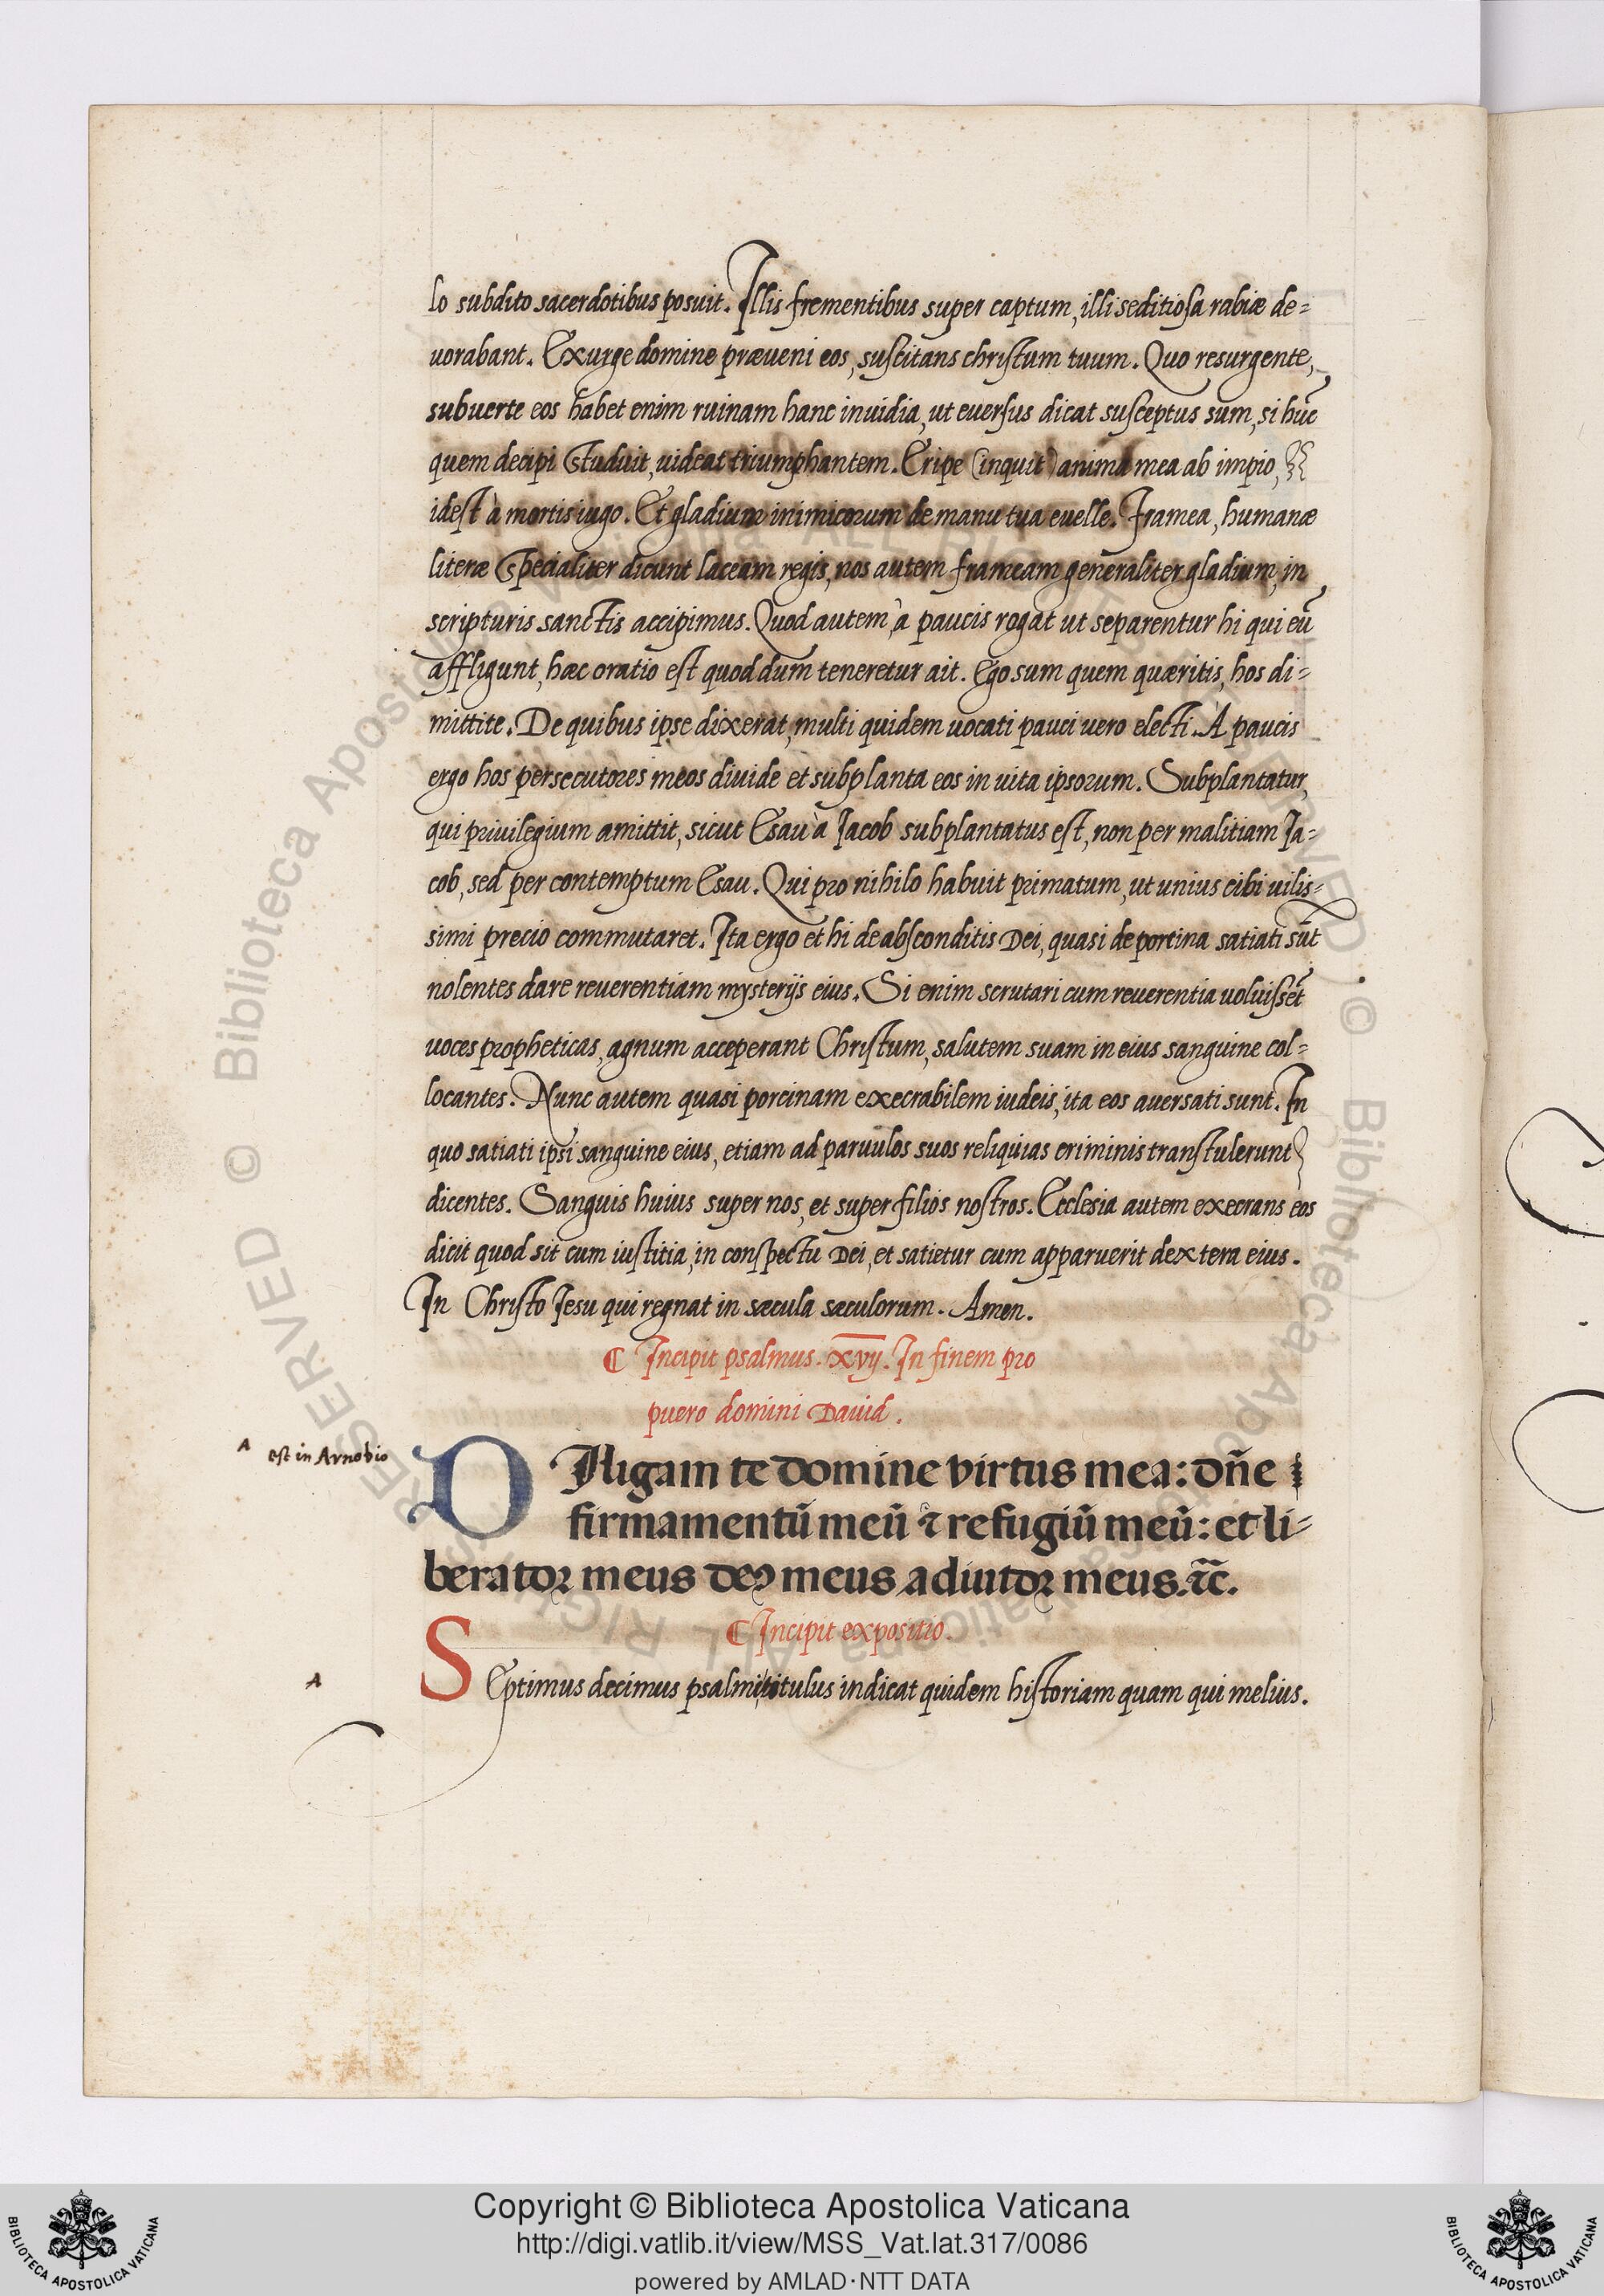 lo subdito sacerdotibus posuit. Illis frementibus super captum, illi seditiosa rabiæ de=
uorabant. Exurge domine præueni eos, suscitans christum tuum. Quo resurgente,
subuerte eos habet enim ruinam hanc inuidia, ut euersus dicat susceptus sum, si huc
quem decipi studuit, uideat triumphantem. Eripe (inquit) animā mea ab impio,
idest à mortis iugo. Et gladium inimicorum de manu tua euelle. Framea, humanæ
literæ specialiter dicunt laceam regis, nos autem frameam generaliter gladium, in
scripturis sanctis accipimus. Quod autem, à paucis rogat ut separentur hi qui eū
affligunt, hæc oratio est quod dum teneretur ait. Ego sum quem quæritis, hos di=
mittite. De quibus ipse dixerat, multi quidem uocati pauci uero electi. A paucis
ergo hos persecutores meos diuide et subplanta eos in uita ipsorum. Subplantatur,
qui priuilegium amittit, sicut Esau à Jacob subplantatus est, non per malitiam Ja=
cob, sed per contemptum Esau. Qui pro nihilo habuit primatum, ut unius cibi uilis=
simi precio commutaret. Ita ergo et hi de absconditis Dei, quasi de porcina satiati sūt
nolentes dare reuerentiam mysterijs eius. Si enim scrutari cum reuerentia uoluissēt
uoces propheticas, agnum acceperant Christum, salutem suam in eius sanguine col=
locantes. Nunc autem quasi porcinam execrabilem iudeis, ita eos auersati sunt. In
quo satiati ipsi sanguine eius, etiam ad paruulos suos reliquias criminis transtulerunt
dicentes. Sanguis huius super nos, et super filios nostros. Ecclesia autem execrans eos
dicit quod sit cum iustitia, in conspectu Dei, et satietur cum apparuerit dextera eius.
In Christo Jesu qui regnat in sæcula sæculorum. Amen.
¶ Incipit psalmus. xvij. In finem pro
puero domini Dauid.
A est in Arnobio
DIligam te domine virtus mea: dñe
firmamentū meū ⁊ refugiū meū: et li=
berator meus deꝰ meus adiutor meus. ⁊c̄.
¶ Incipit expositio.
A
SEptimus decimus psalmi titulus indicat quidem historiam quam qui melius.
Copyright © Biblioteca Apostolica Vaticana
http://digi.vatlib.it/view/MSS_Vat.lat.317/0086
powered by AMLAD·NTT DATA
BIBLIOTECA APOSTOLICA VATICANA
BIBLIOTECA APOSTOLICA VATICANA